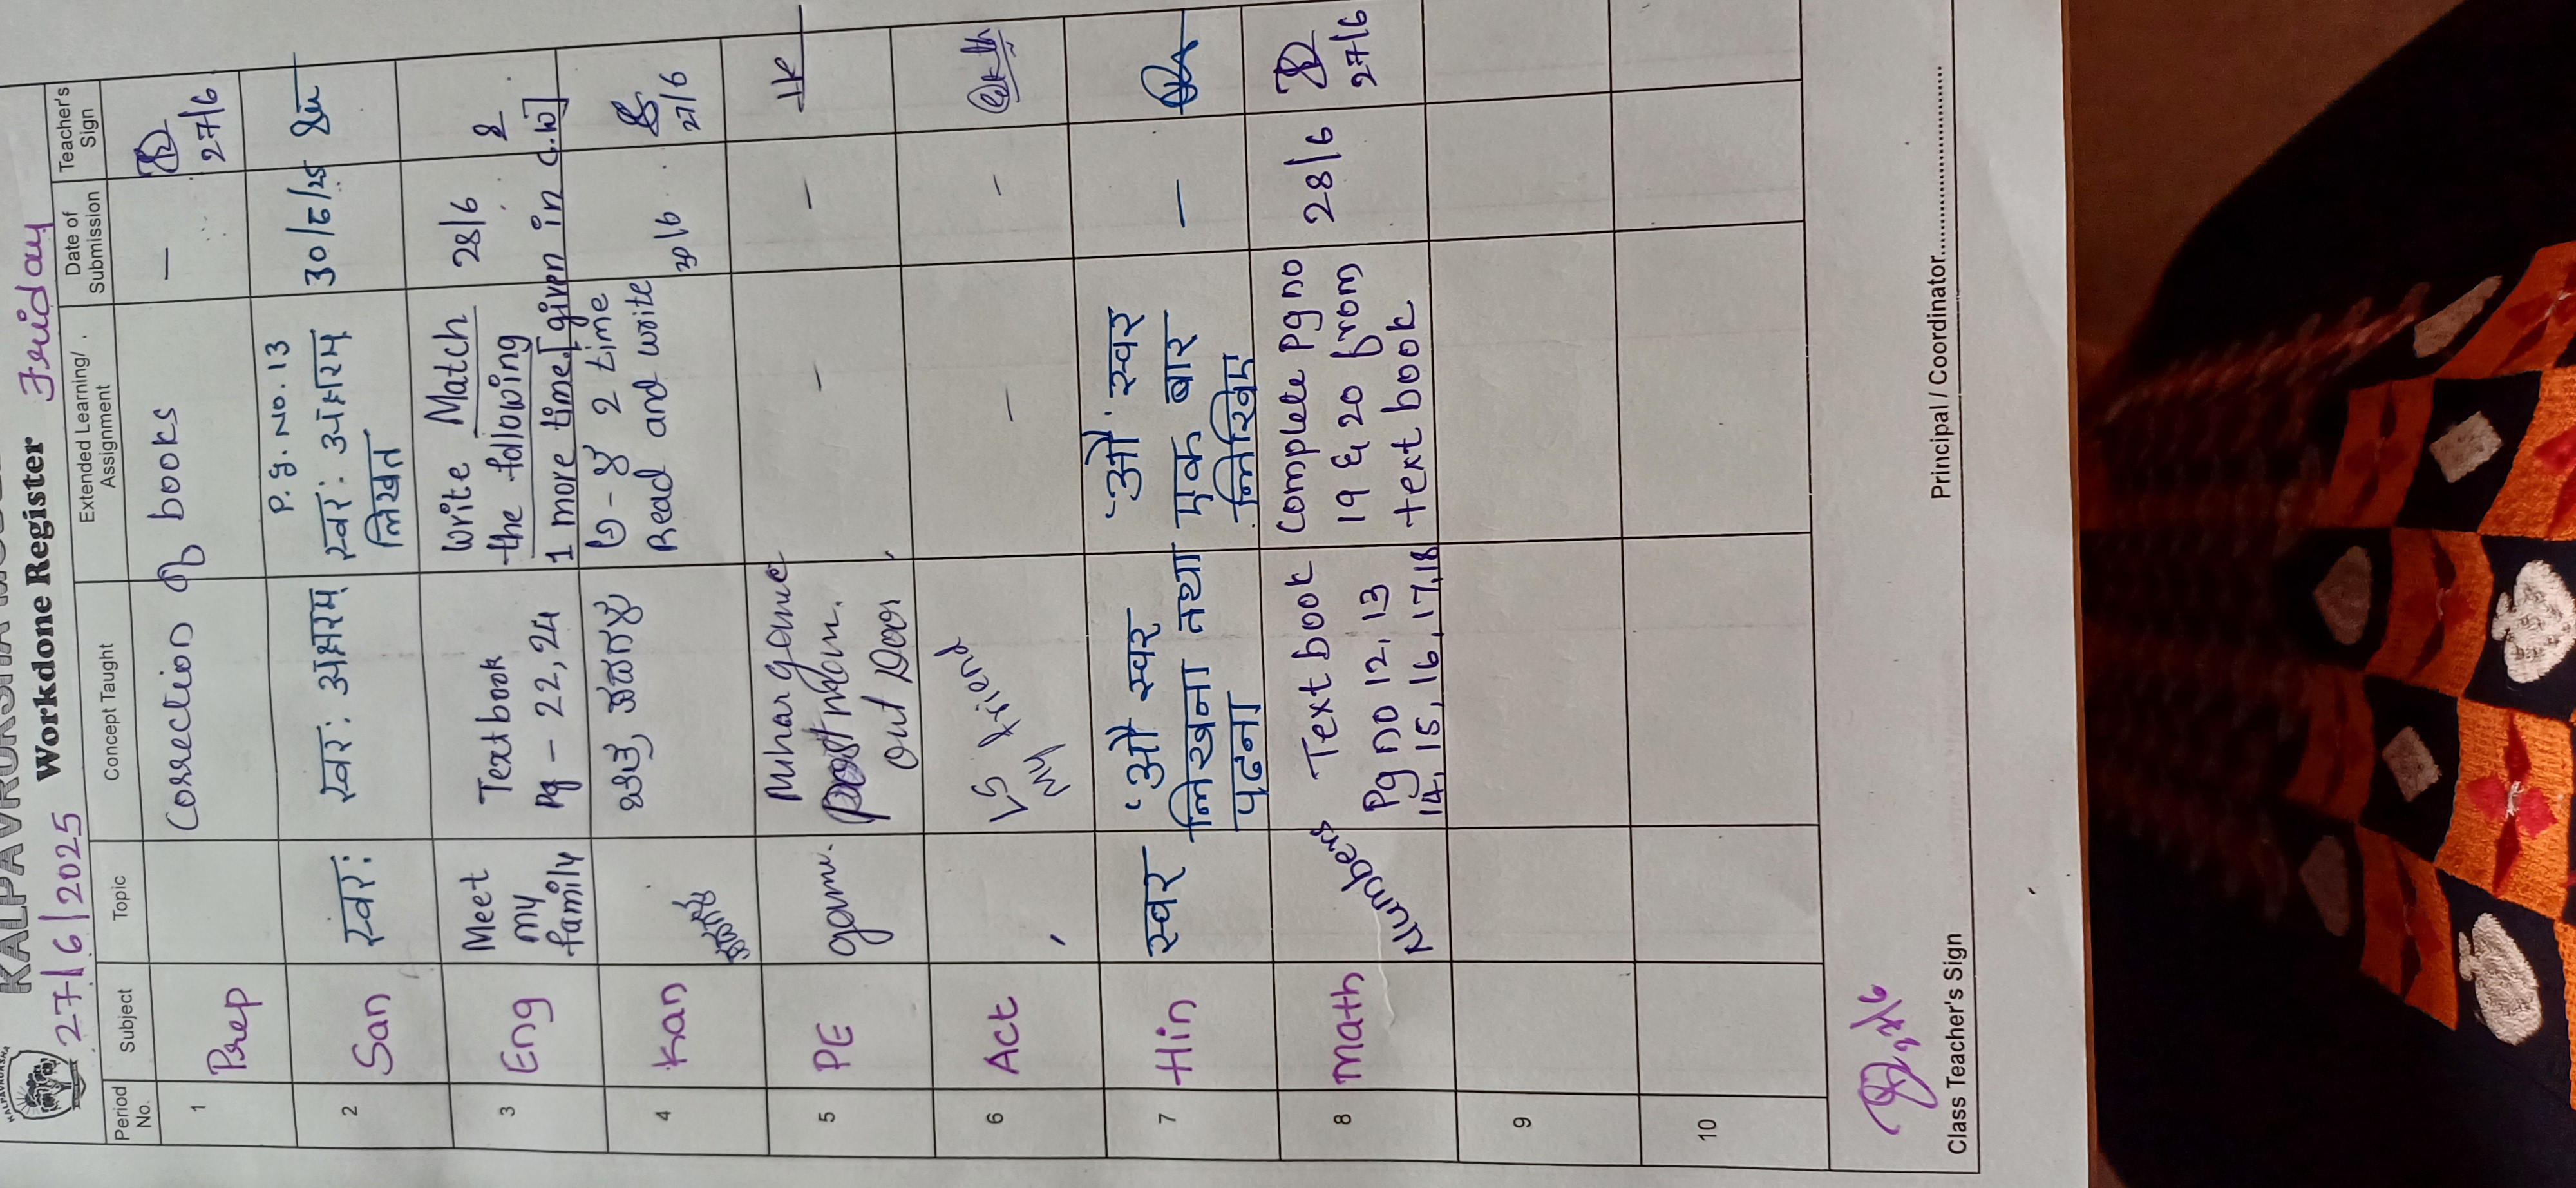 KALPAVRUKSHA
Workdone Register
27/6/2025
Friday
Period No. Subject Topic Concept Taught Extended Learning/ Assignment Date of Submission Teacher's Sign
1 Prep Correction of books — 27/6
2 San स्वर: स्वर: अक्षरम् P.g. No. 13
स्वर: अक्षरम्
लिखत 30/6/25
3 Eng Meet
my
family Textbook
Pg - 22, 24 Write Match
the following
1 more time [given in C.W] 28/6
4 Kan 2 time
Read and write 30/6 27/6
5 PE game
out Door — —
6 Act My friend — —
7 Hin स्वर 'औ' स्वर
लिखना तथा
पढना 'औ' स्वर
एक बार
लिखिए —
8 Math Numbers Text book
Pg no 12, 13
14, 15, 16, 17, 18 Complete Pg no
19 & 20 from
text book 28/6 27/6
9
10
Class Teacher's Sign
Principal / Coordinator